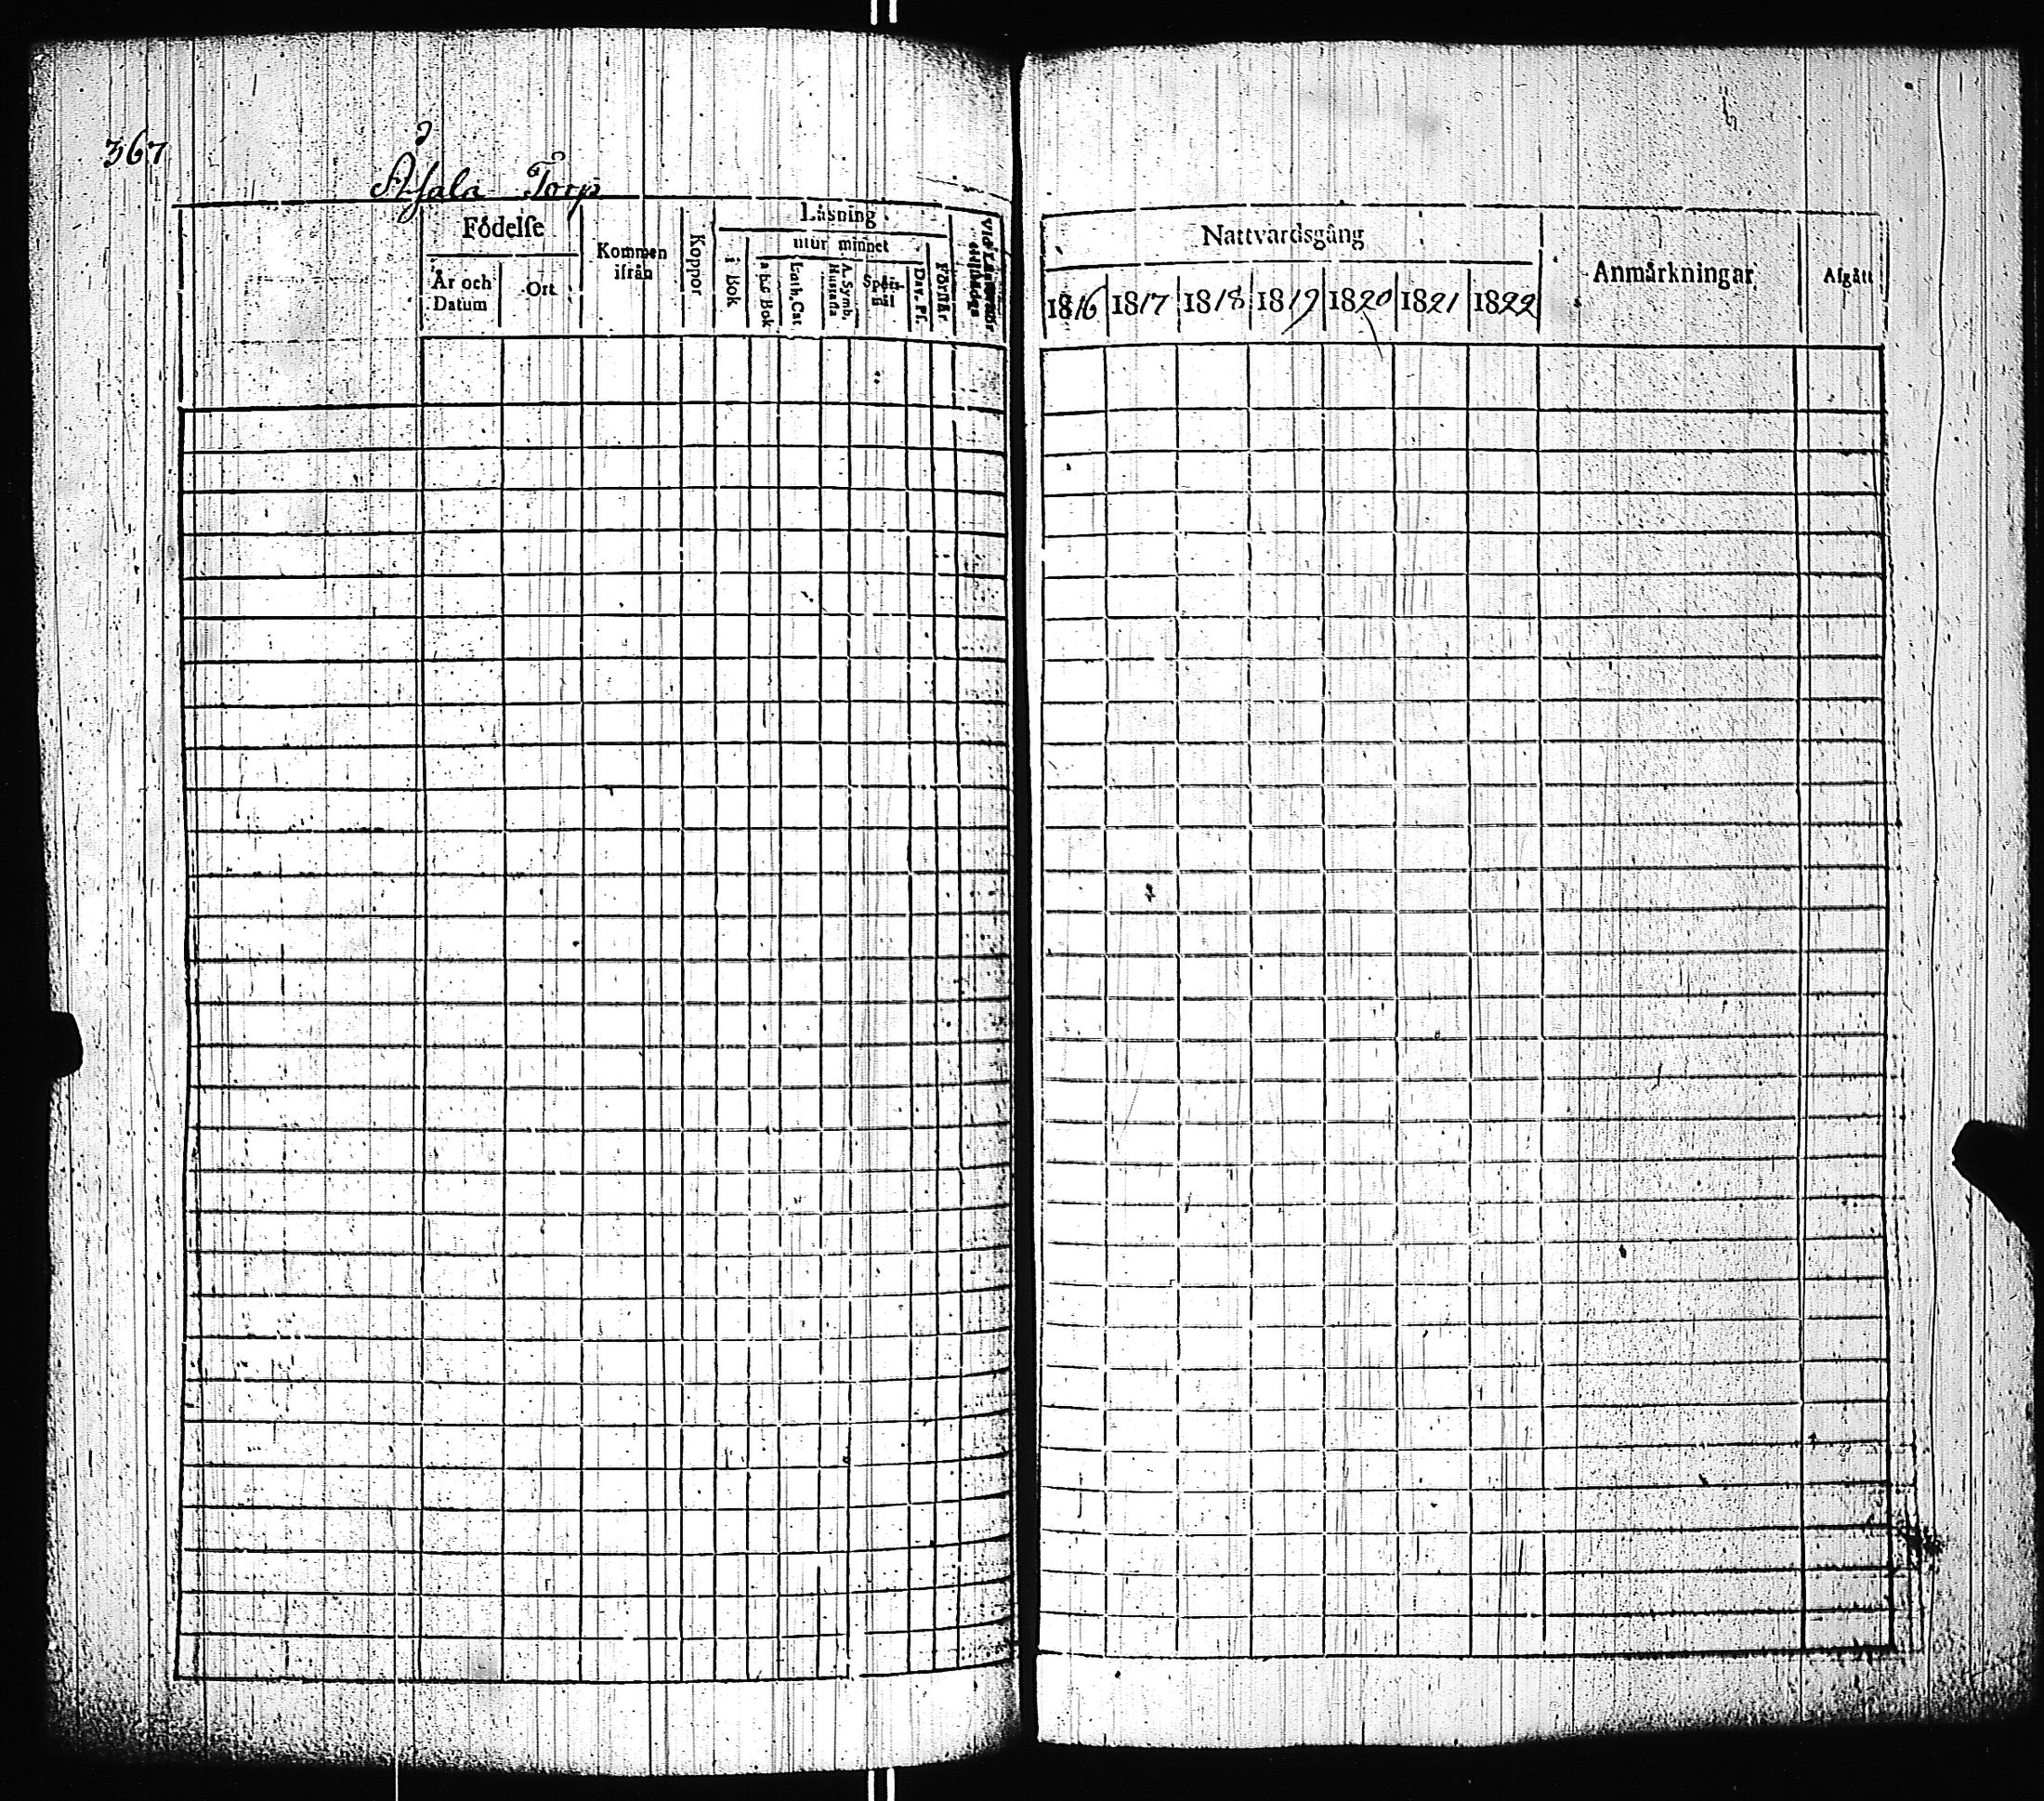 367
Åsala Torp
Födelse
År och Datum
Ort
Kommen ifrån
Koppor
Läsning
i Bok
utur minnet
a b c Bok
Luth. Cat
A. Symb. Hustafla
Spörs-mål
Dav. Ps.
Förstår
Nattvardsgång
1816 1817 1818 1819 1820 1821 1822
Anmärkningar
Afgått